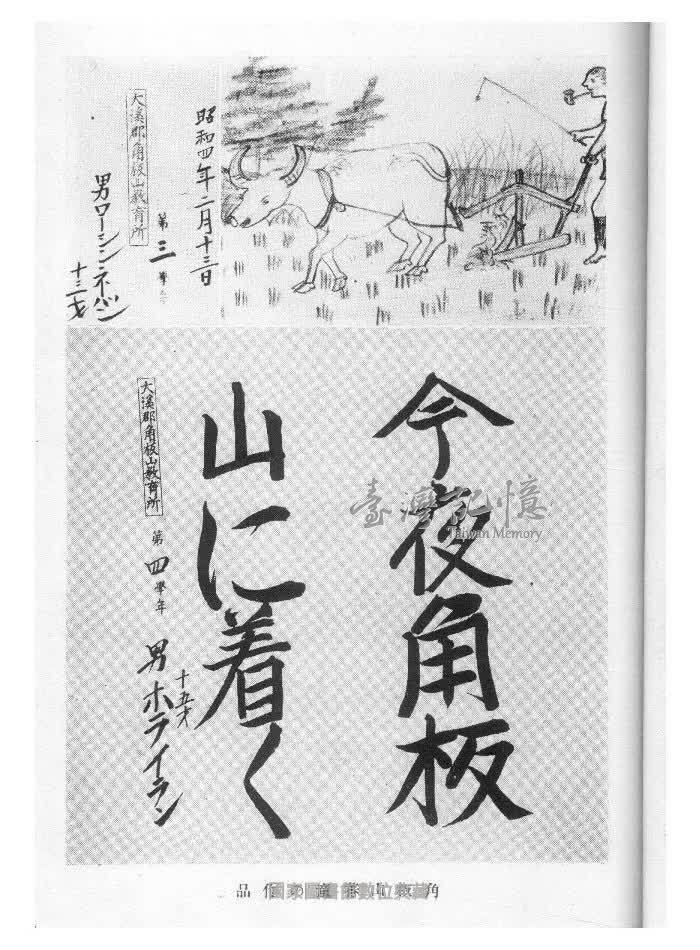 昭和四年二月十三日
大溪郡角板山教育所
第三學年
男ワーシン・ネバン
十三才
今夜角板
山に着く
大溪郡角板山教育所
第四學年
十五才
男ホライラン
臺灣記憶
Taiwan Memory
角板山蕃童の作品
國家圖書館數位典藏